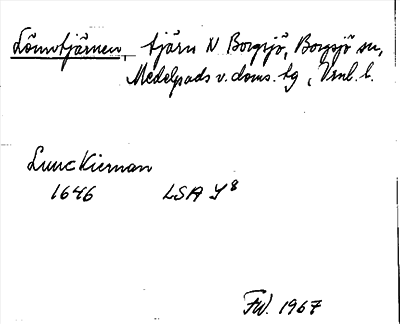 Lönntjärnen, tjärn N Borgsjö, Borgsjö sn,
Medelpads v. doms. tg, Vnl. l.
1646 LSA Y 8
FW. 1967